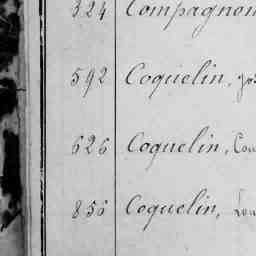 324 Compagnon
592 Coquelin,
626 Coquelin,
856 Coquelin,